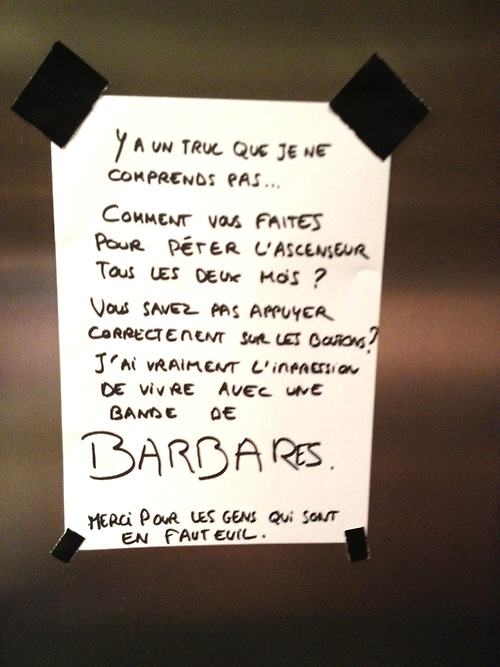 Y A UN TRUC QUE JE NE
COMPRENDS PAS...
COMMENT VOUS FAITES
POUR PÉTER L'ASCENSEUR
TOUS LES DEUX MOIS ?
VOUS SAVEZ PAS APPUYER
CORRECTEMENT SUR LES BOUTONS?
J'AI VRAIMENT L'IMPRESSION
DE VIVRE AVEC UNE
BANDE DE
BARBARES.
MERCI POUR LES GENS QUI SONT
EN FAUTEUIL.